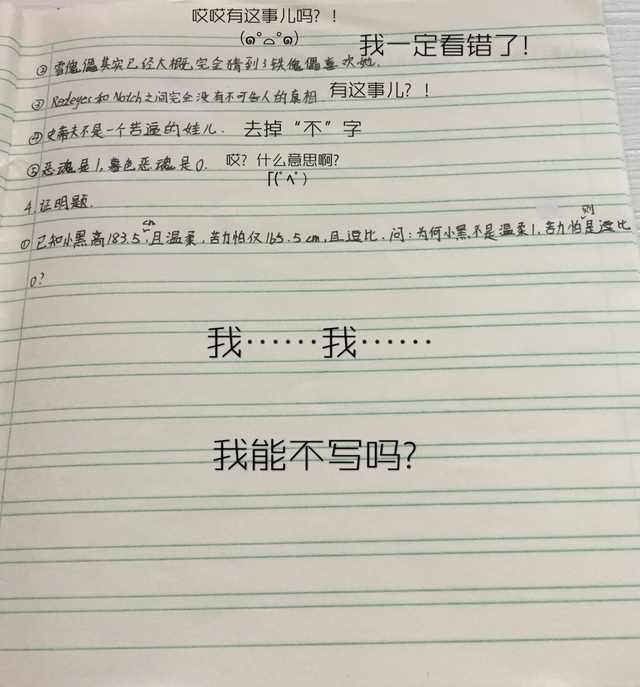 哎哎有这事儿吗？！
(๑°⌓°๑)
我一定看错了！
②雪傀儡其实已经大概完全猜到了铁傀儡喜欢她.
③Redeyes和Notch之间完全没有不可告人的真相. 有这事儿？！
④史蒂夫不是一个苦逼的娃儿. 去掉“不”字
⑤恶魂是1,暮色恶魂是0. 哎？什么意思啊?
「(ﾟヘﾟ)
4.证明题.
①已知小黑高183.5cm,且温柔,苦力怕仅165.5cm,且逗比.问:为何小黑不是温柔1,苦力怕则是逗比
0?
我……我……
我能不写吗?